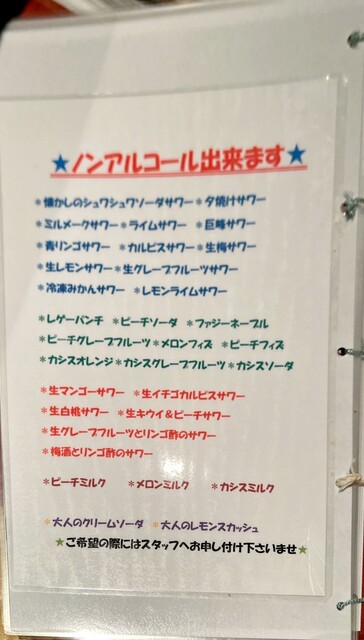 ★ノンアルコール出来ます★
*懐かしのシュワシュワソーダサワー *夕焼けサワー
*ミルメークサワー *ライムサワー *巨峰サワー
*青リンゴサワー *カルピスサワー *生梅サワー
*生レモンサワー *生グレープフルーツサワー
*冷凍みかんサワー *レモンライムサワー
*レゲーパンチ *ピーチソーダ *ファジーネーブル
*ピーチグレープフルーツ *メロンフィズ *ピーチフィズ
*カシスオレンジ *カシスグレープフルーツ *カシスソーダ
*生マンゴーサワー *生イチゴカルピスサワー
*生白桃サワー *生キウイ&ピーチサワー
*生グレープフルーツとリンゴ酢のサワー
*梅酒とリンゴ酢のサワー
*ピーチミルク *メロンミルク *カシスミルク
*大人のクリームソーダ *大人のレモンスカッシュ
★ご希望の際にはスタッフへお申し付け下さいませ★